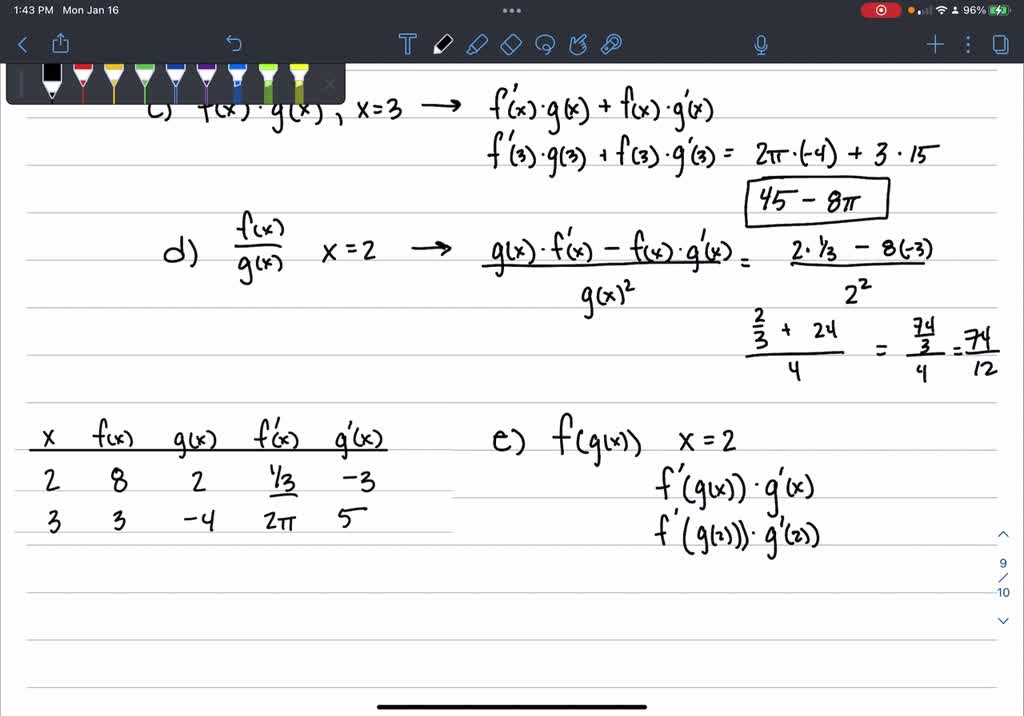 1:43 PM Mon Jan 16
96%
c) f(x) · g(x), x = 3 → f'(x) · g(x) + f(x) · g'(x)
f'(3) · g(3) + f(3) · g'(3) = 2π · (-4) + 3 · 15
45 - 8π
d) f(x)/g(x) x = 2 → g(x) · f'(x) - f(x) · g'(x) / g(x)² = 2 · 1/3 - 8(-3) / 2²
2/3 + 24 / 4 = 74/3 / 4 = 74/12
x f(x) g(x) f'(x) g'(x)
2 8 2 1/3 -3
3 3 -4 2π 5
e) f(g(x)) x = 2
f'(g(x)) · g'(x)
f'(g(2))) · g'(2))
9/10